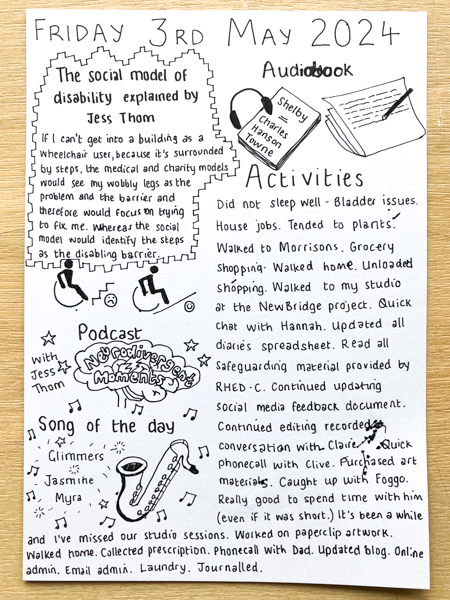 FRIDAY 3RD MAY 2024
The social model of
disability explained by
Jess Thom
If I can't get into a building as a
wheelchair user, because it's surrounded
by steps, the medical and charity models
would see my wobbly legs as the
problem and the barrier and
therefore would focus on trying
to fix me. Whereas the social
model would identify the steps
as the disabling barrier.
Audiobook
Shelby
=
Charles
Hanson
Towne
Podcast
With
Jess
Thom
Neurodivergent
Moments
Song of the day
Glimmers
=
Jasmine
Myra
Activities
Did not sleep well - Bladder issues.
House jobs. Tended to plants.
Walked to Morrisons. Grocery
shopping. Walked home. Unloaded
shopping. Walked to my studio
at the NewBridge project. Quick
chat with Hannah. Updated all
diaries spreadsheet. Read all
safeguarding material provided by
RHED-C. Continued updating
social media feedback document.
Continued editing recorded
conversation with Claire. Quick
phonecall with Clive. Purchased art
materials. Caught up with Foggo.
Really good to spend time with him
(even if it was short.) It's been a while
and I've missed our studio sessions. Worked on paperclip artwork.
Walked home. Collected prescription. Phonecall with Dad. Updated blog. Online
admin. Email admin. Laundry. Journalled.